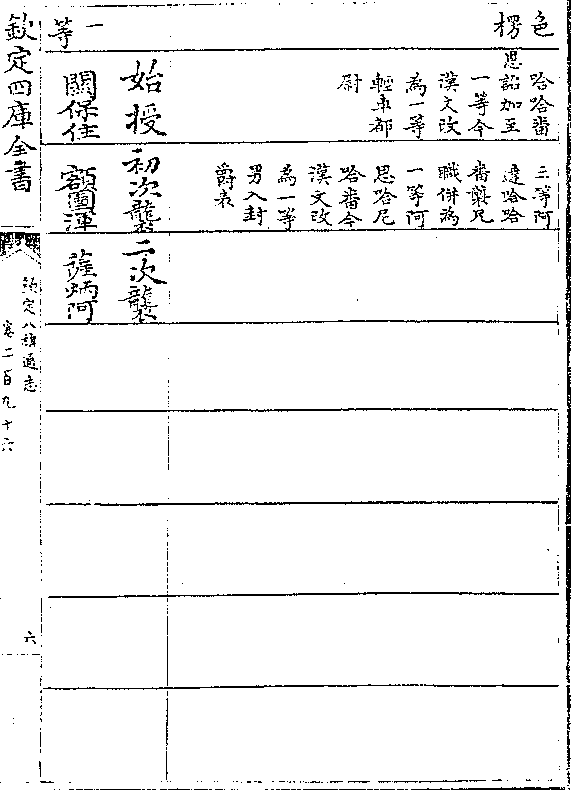 色
楞
哈哈番
恩詔加至
一等今
漢文改
為一等
輕車都
尉
三等阿
達哈哈
番襲兄
職併為
一等阿
思哈尼
哈番今
漢文改
為一等
男入封
爵表
一
等
始授
初次襲
二次襲
關保住
額圖渾
薩炳阿
欽定四庫全書
欽定八旗通志
卷二百九十六
六